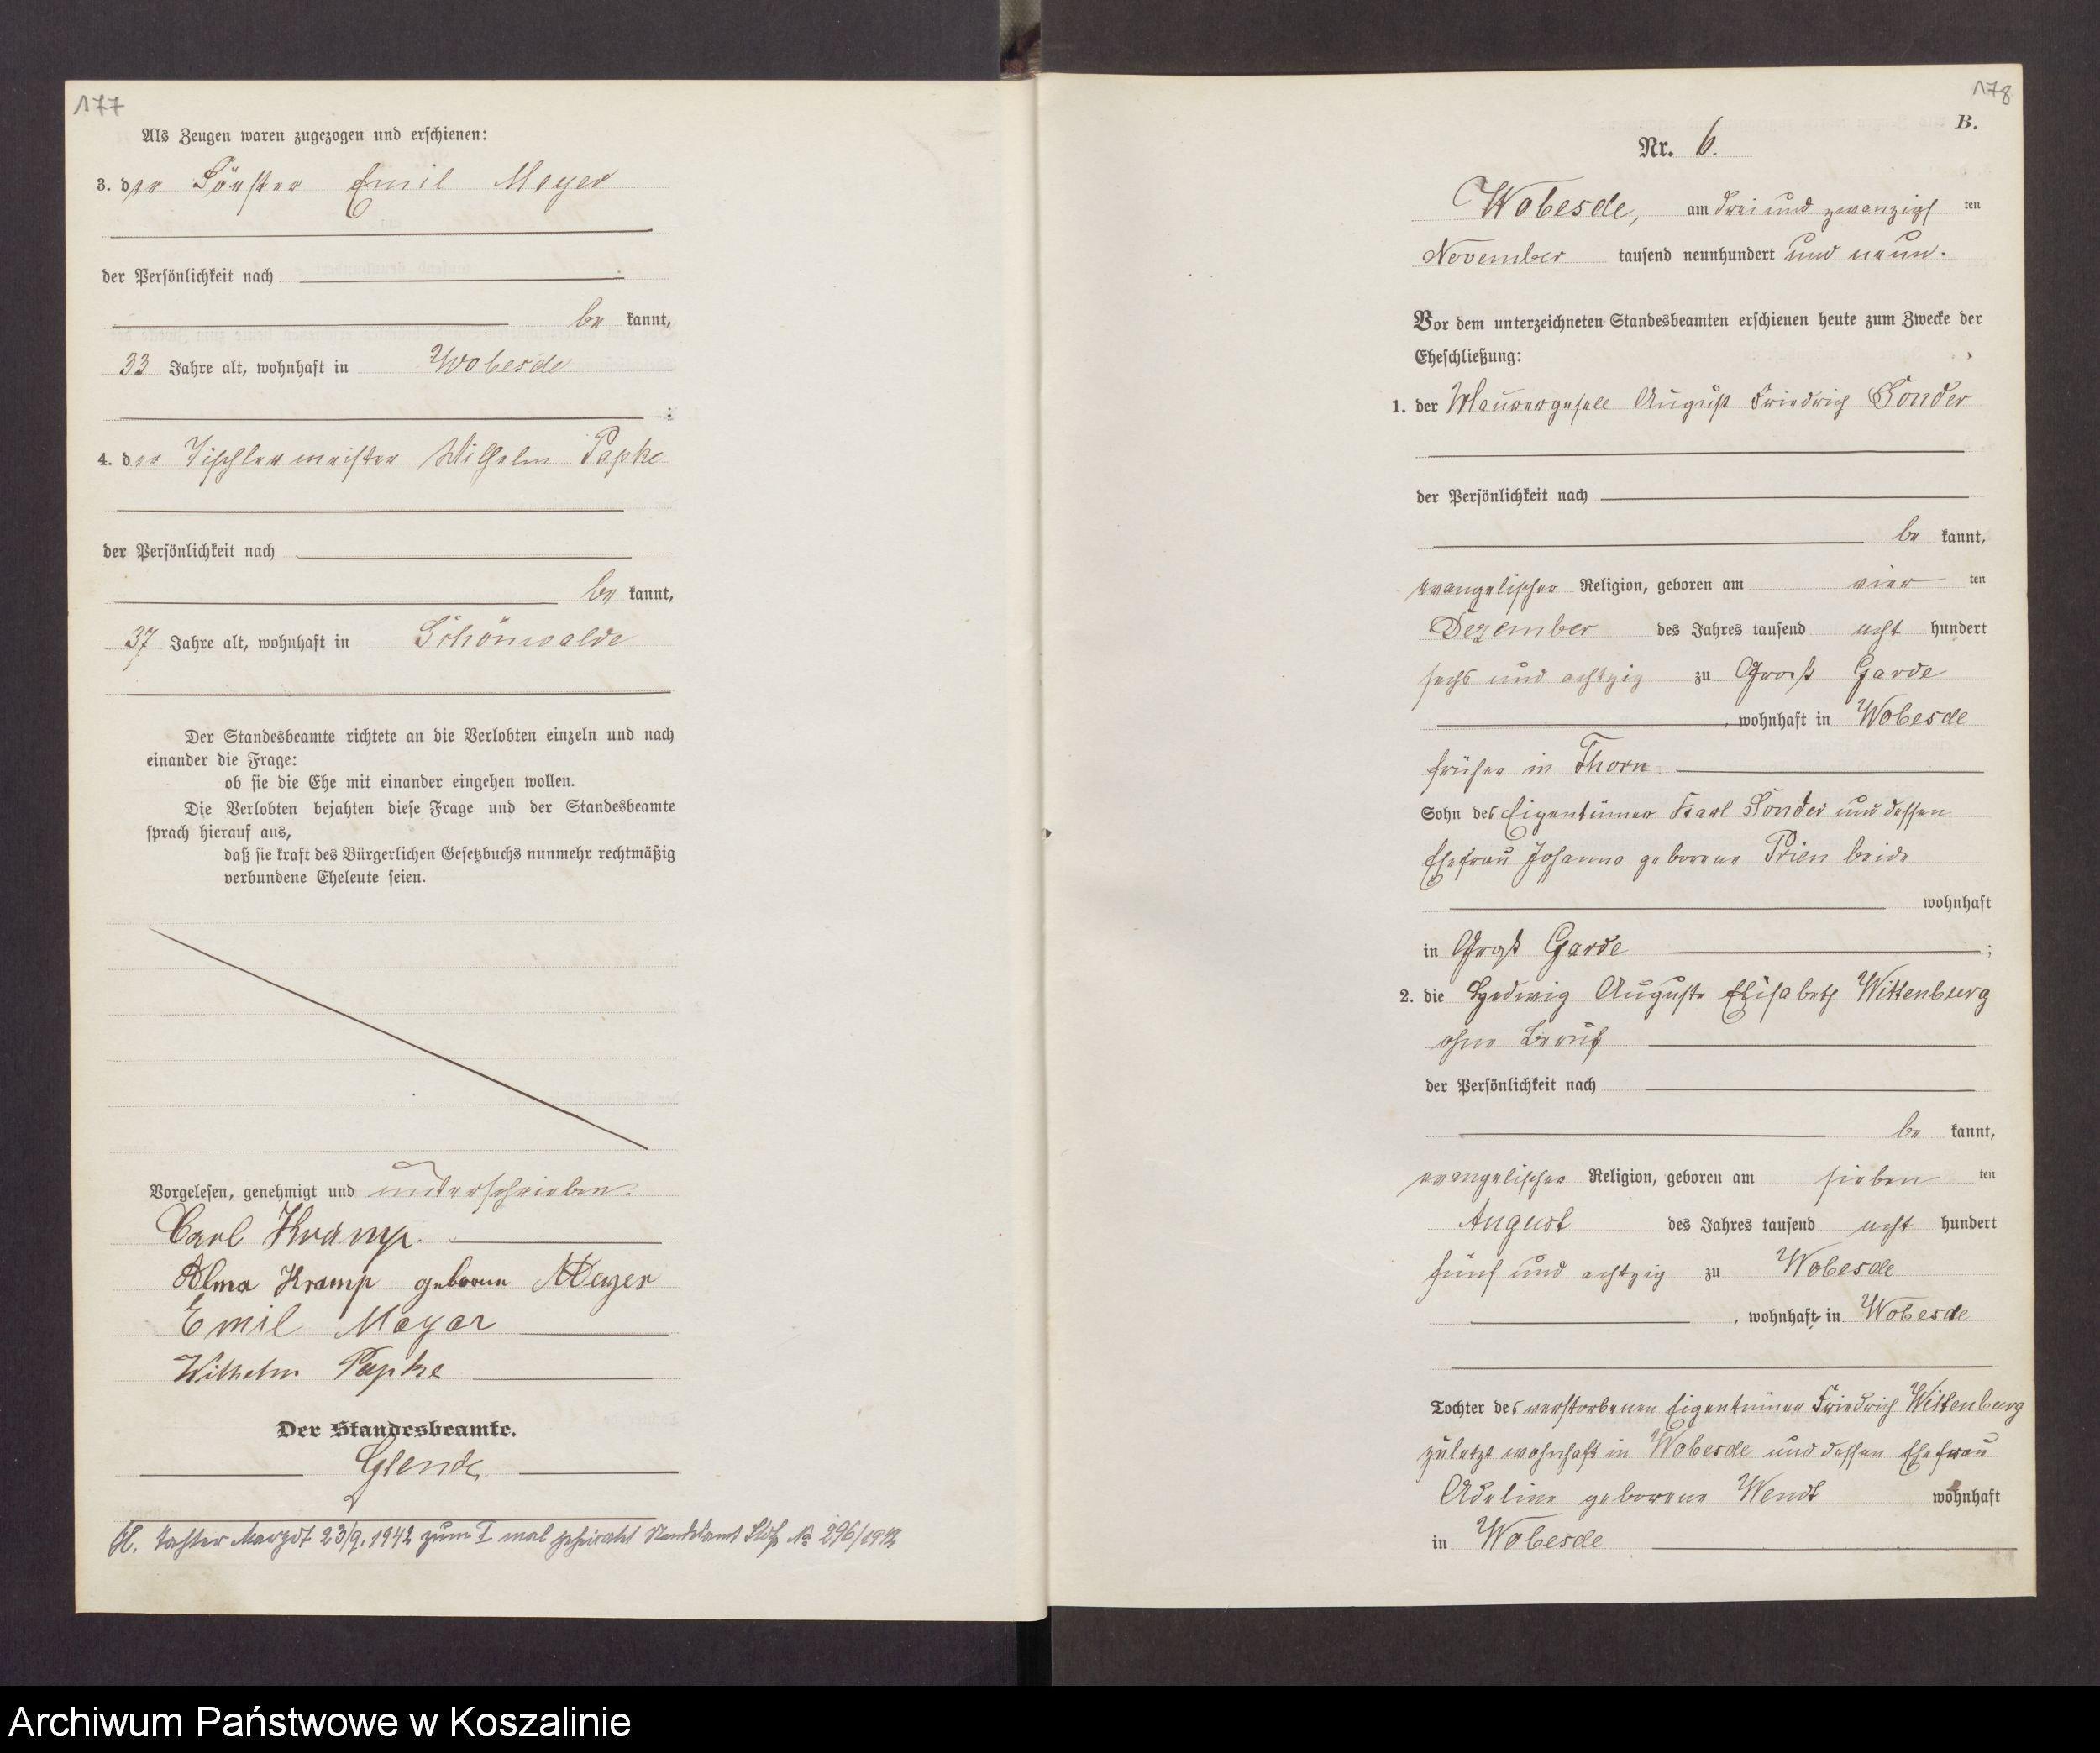 177
Als Zeugen waren zugezogen und erschienen:
3. der Förster Emil Meyer
der Persönlichkeit nach
be kannt,
33 Jahre alt, wohnhaft in Wobesde
;
4. der Tischlermeister Wilhelm Papke
der Persönlichkeit nach
be kannt,
37 Jahre alt, wohnhaft in Schönwalde
Der Standesbeamte richtete an die Verlobten einzeln und nach
einander die Frage:
ob sie die Ehe mit einander eingehen wollen.
Die Verlobten bejahten diese Frage und der Standesbeamte
sprach hierauf aus,
daß sie kraft des Bürgerlichen Gesetzbuchs nunmehr rechtmäßig
verbundene Eheleute seien.
Vorgelesen, genehmigt und unterschrieben.
Carl Kramp.
Alma Kramp geborene Meyer
Emil Meyer
Wilhelm Papke
Der Standesbeamte.
Glende
Tochter Margot 23/9. 1942 zum I mal geheiratet Standesamt No 296/1942
178
B.
Nr. 6.
Wobesde, am drei und zwanzigs ten
November tausend neunhundert und neun.
Vor dem unterzeichneten Standesbeamten erschienen heute zum Zwecke der
Eheschließung:
1. der Maurergeselle August Friedrich Sonder
der Persönlichkeit nach
be kannt,
evangelischer Religion, geboren am vier ten
Dezember des Jahres tausend acht hundert
sechs und achtzig zu Groß Garde
, wohnhaft in Wobesde
früher in Thorn
Sohn des Eigentümer Karl Sonder und dessen
Ehefrau Johanna geborene Prien beide
wohnhaft
in Groß Garde ;
2. die Hedwig Auguste Elisabeth Wittenburg
ohne Beruf
der Persönlichkeit nach
be kannt,
evangelischer Religion, geboren am sieben ten
August des Jahres tausend acht hundert
fünf und achtzig zu Wobesde
, wohnhaft in Wobesde
Tochter des verstorbenen Eigentümer Friedrich Wittenburg
zuletzt wohnhaft in Wobesde und dessen Ehefrau
Adeline geborene Wendt wohnhaft
in Wobesde
Archiwum Państwowe w Koszalinie